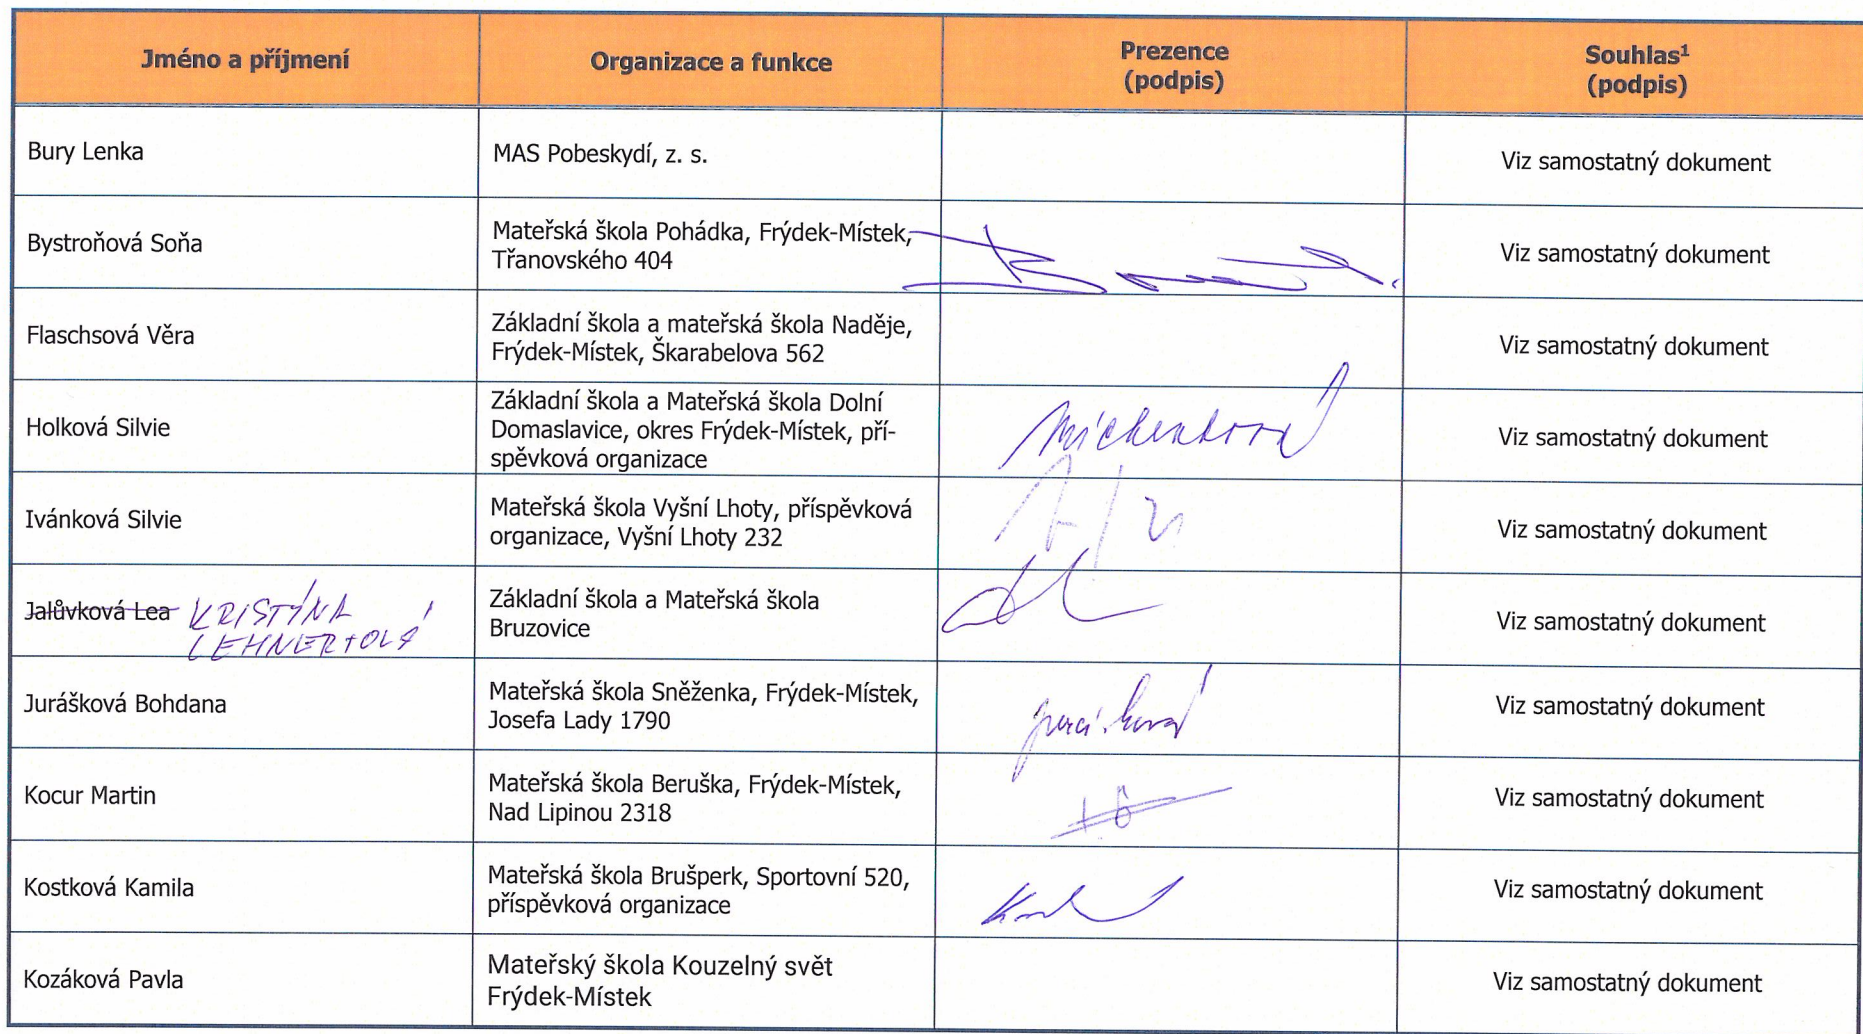 Jméno a příjmení
Organizace a funkce
Prezence
(podpis)
Souhlas¹
(podpis)
Bury Lenka
MAS Pobeskydí, z. s.
Viz samostatný dokument
Bystroňová Soňa
Mateřská škola Pohádka, Frýdek-Místek,
Třanovského 404
Viz samostatný dokument
Flaschsová Věra
Základní škola a mateřská škola Naděje,
Frýdek-Místek, Škarabelova 562
Viz samostatný dokument
Holková Silvie
Základní škola a Mateřská škola Dolní
Domaslavice, okres Frýdek-Místek, pří-
spěvková organizace
Viz samostatný dokument
Ivánková Silvie
Mateřská škola Vyšní Lhoty, příspěvková
organizace, Vyšní Lhoty 232
Viz samostatný dokument
Jalůvková Lea KRISTÝNA
LEHNERTOVÁ
Základní škola a Mateřská škola
Bruzovice
Viz samostatný dokument
Jurášková Bohdana
Mateřská škola Sněženka, Frýdek-Místek,
Josefa Lady 1790
Viz samostatný dokument
Kocur Martin
Mateřská škola Beruška, Frýdek-Místek,
Nad Lipinou 2318
Viz samostatný dokument
Kostková Kamila
Mateřská škola Brušperk, Sportovní 520,
příspěvková organizace
Viz samostatný dokument
Kozáková Pavla
Mateřský škola Kouzelný svět
Frýdek-Místek
Viz samostatný dokument